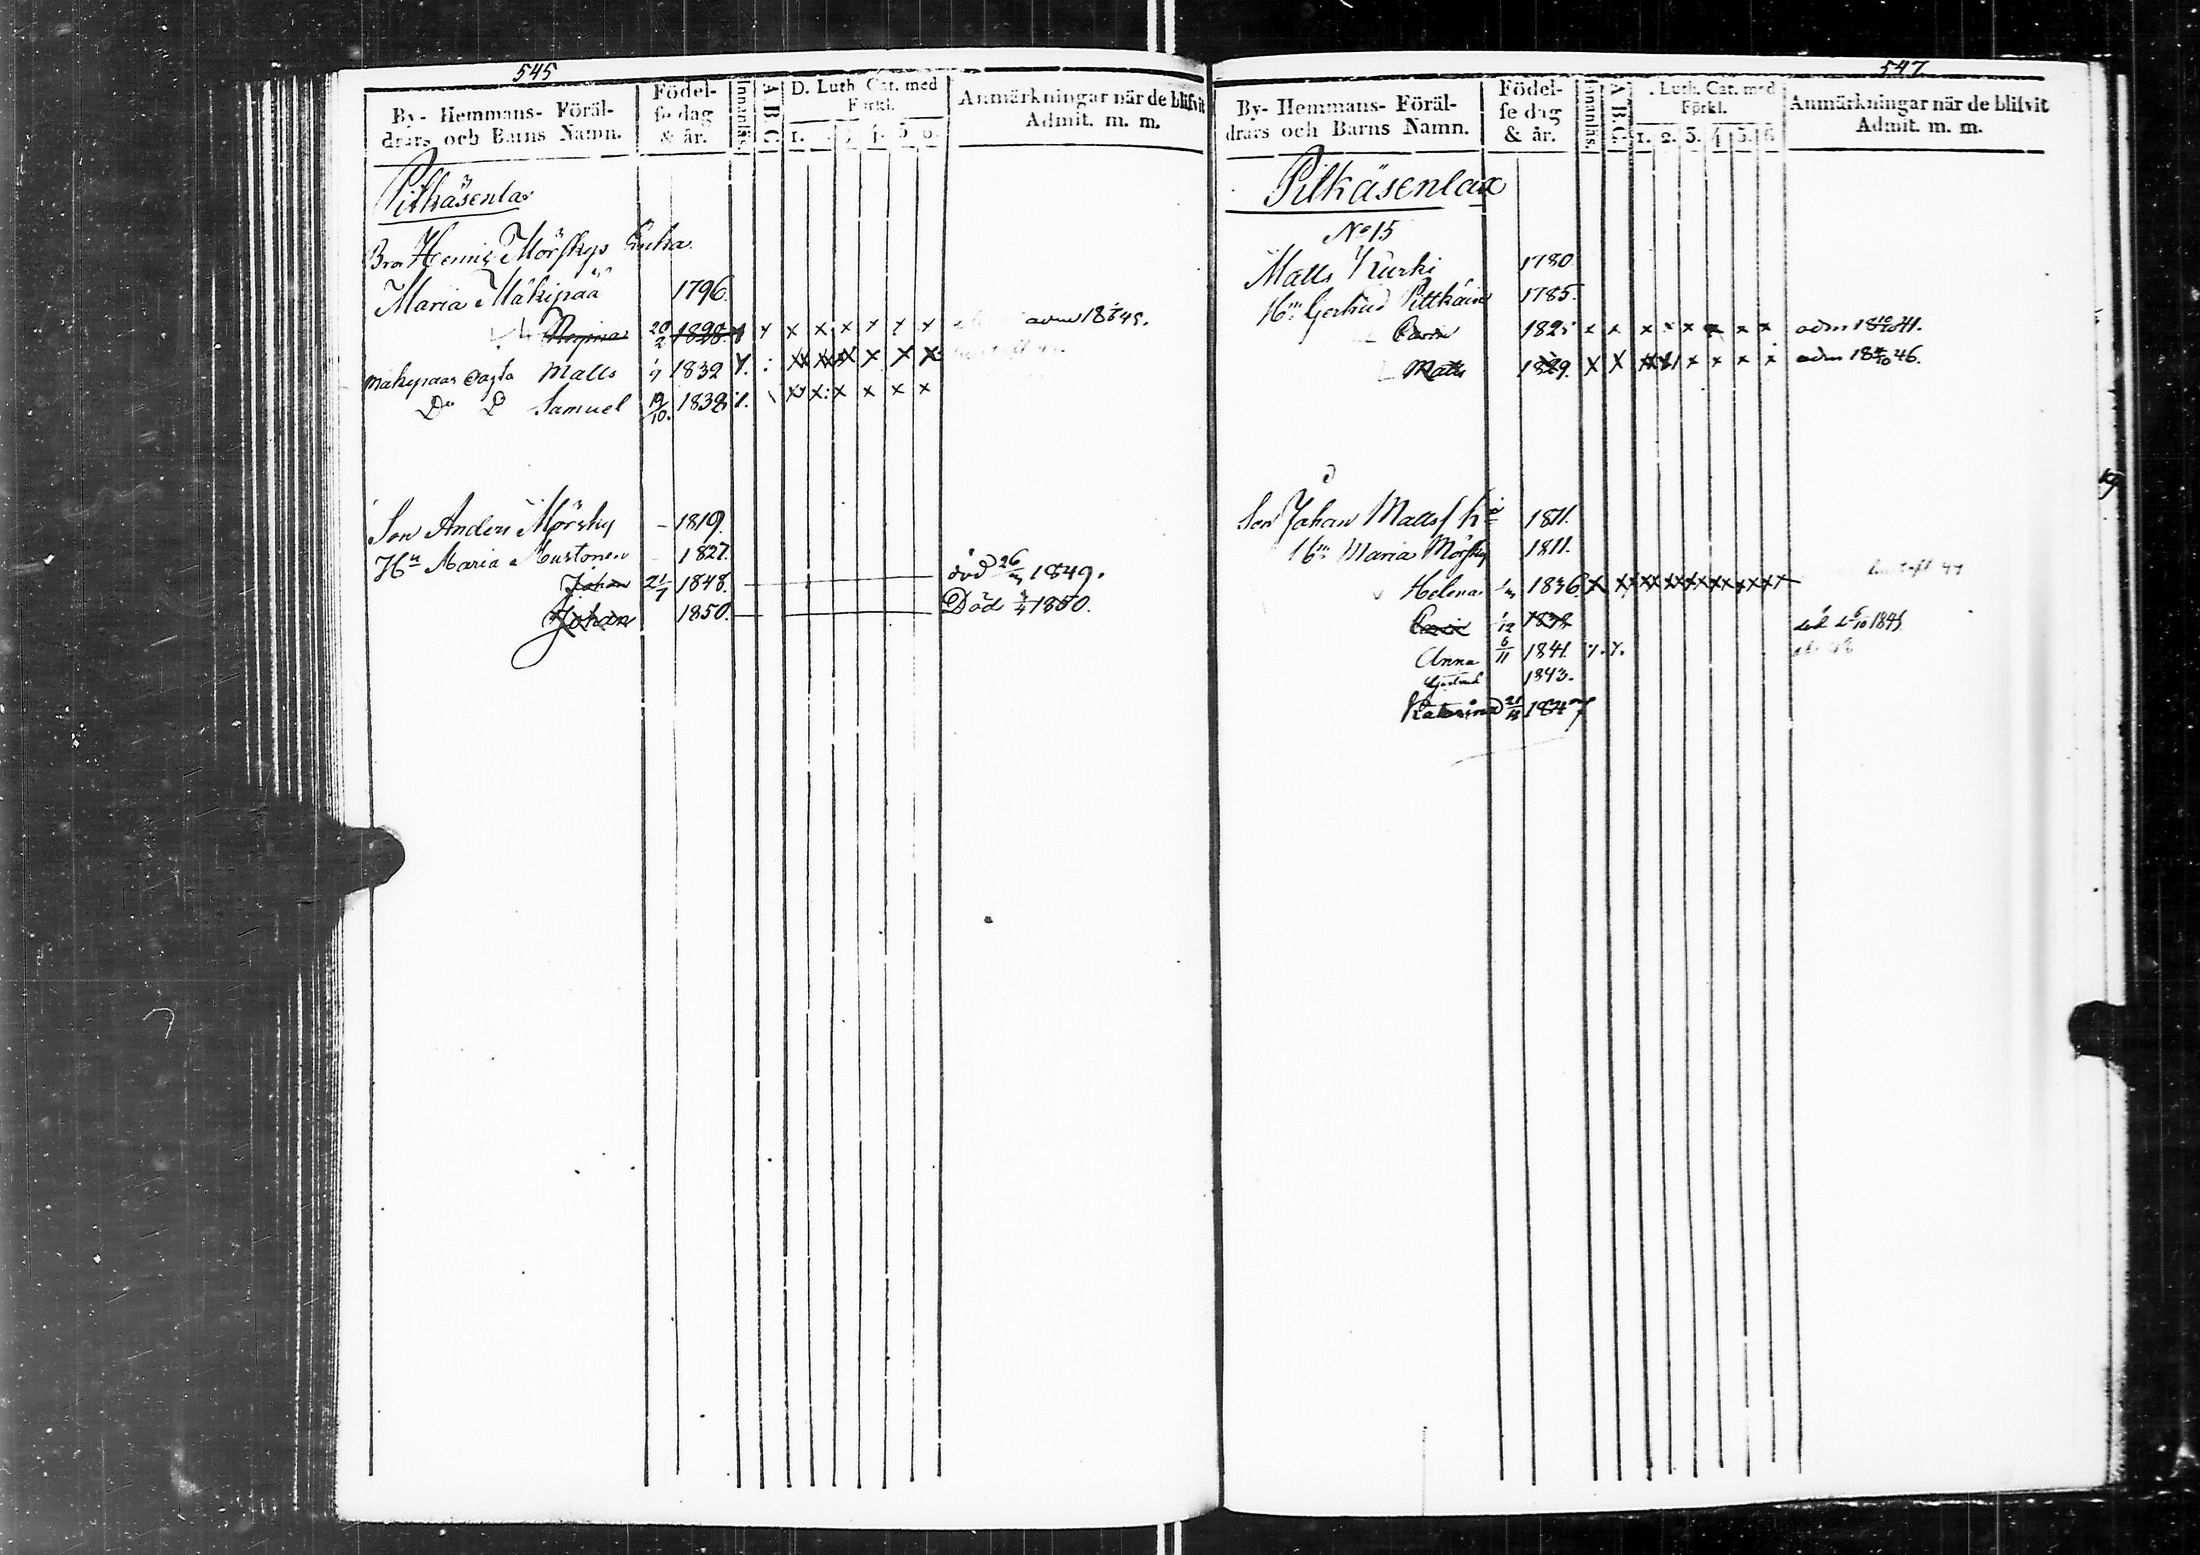 545
By- Hemmans- Föräl-
drars och Barns Namn.
Födel-
se dag
& år.
Innanläs.
A B C.
D. Luth. Cat. med
Förkl.
1. 3. 4. 5. 6.
Anmärkningar när de blifvit
Admit. m. m.
Pitkäsenlax
Bror Henric Mörskys Enka
Maria Mäkipää 1796.
Regina 20/2 1828. x x x x x x x adm 18 45.
Mäkipääs Matts 1/7 1832 x x x x x x
Do Do Samuel 19/10. 1838 x x x x x x
Son Anders Mörsky - 1819.
Hu Maria Mustonen 1827.
Johan 21/7 1848. död 26/ 1849.
Johan 1850. Död 1850.
547
By- Hemmans- Föräl-
drars och Barns Namn.
Födel-
se dag
& år.
Innanläs.
A B C.
. Luth. Cat. med
Förkl.
1. 2. 3. 4 5. 6
Anmärkningar när de blifvit
Admit. m. m.
Pitkäsenlax
No 15
Matts Kurki 1780
Hu Gertrud Pitkäin 1785.
Carin 1825 x x x x x x x x adm 18 41.
Matts 1829. x x x x x x x adm 18 46.
Son Johan Matts 1811.
Hu Maria Mörsky 1811.
Helena 1836 x x x x x x x x 47
Carin 1/12 1838 död 1845
Anna 6/11 1841
Gertrud 1843.
Katarina 1847